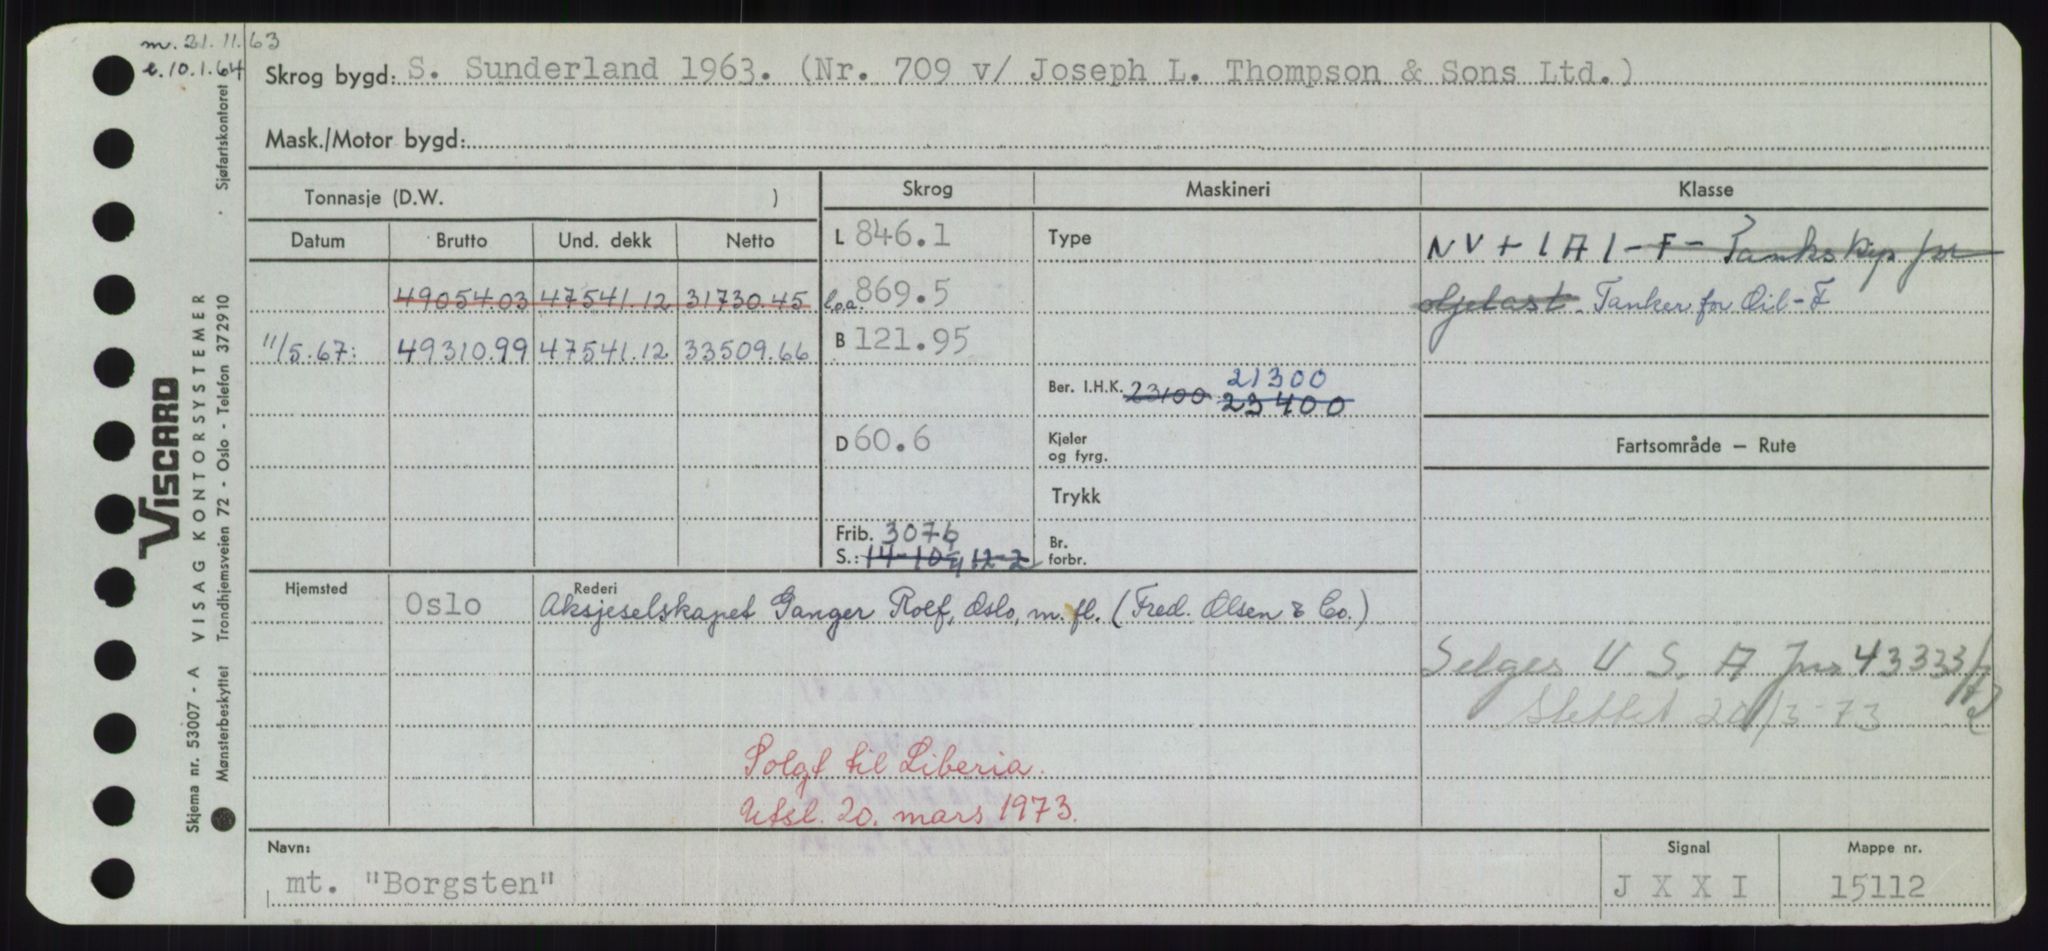 m. 21.11.63
e. 10.1.64
Skrog bygd: S. Sunderland 1963. (Nr. 709 v/ Joseph L. Thompson & Sons Ltd.)
Mask./Motor bygd:
Tonnasje (D.W. )
Skrog
Maskineri
Klasse
Datum Brutto Und. dekk Netto
L 846.1
Type
NV + 1A1 - F - Tankskip for
49054.03 47541.12 31730.45
l.o.a. 869.5
oljelast. Tanker for Oil - F
11/5.67: 49310.99 47541.12 33509.66
B 121.95
Ber. I.H.K. 23100 21300
23400
D 60.6
Kjeler
og fyrg.
Fartsområde — Rute
Trykk
Frib. 3076
S.: 14-10 12-2
Br.
forbr.
Hjemsted Oslo
Rederi
Aksjeselskapet Ganger Rolf, Oslo, m.fl. (Fred. Olsen & Co.)
Selges U.S.A 43333/72
Slettet 20/3-73
Solgt til Liberia.
Utsl. 20. mars 1973.
Navn:
mt. "Borgsten"
Signal
J X X I
Mappe nr.
15112
Skjema nr. 53007 - A VISAG KONTORSYSTEMER
VISCARD
Mønsterbeskyttet Trondhjemsveien 72 - Oslo - Telefon 372910 · Sjøfartskontoret